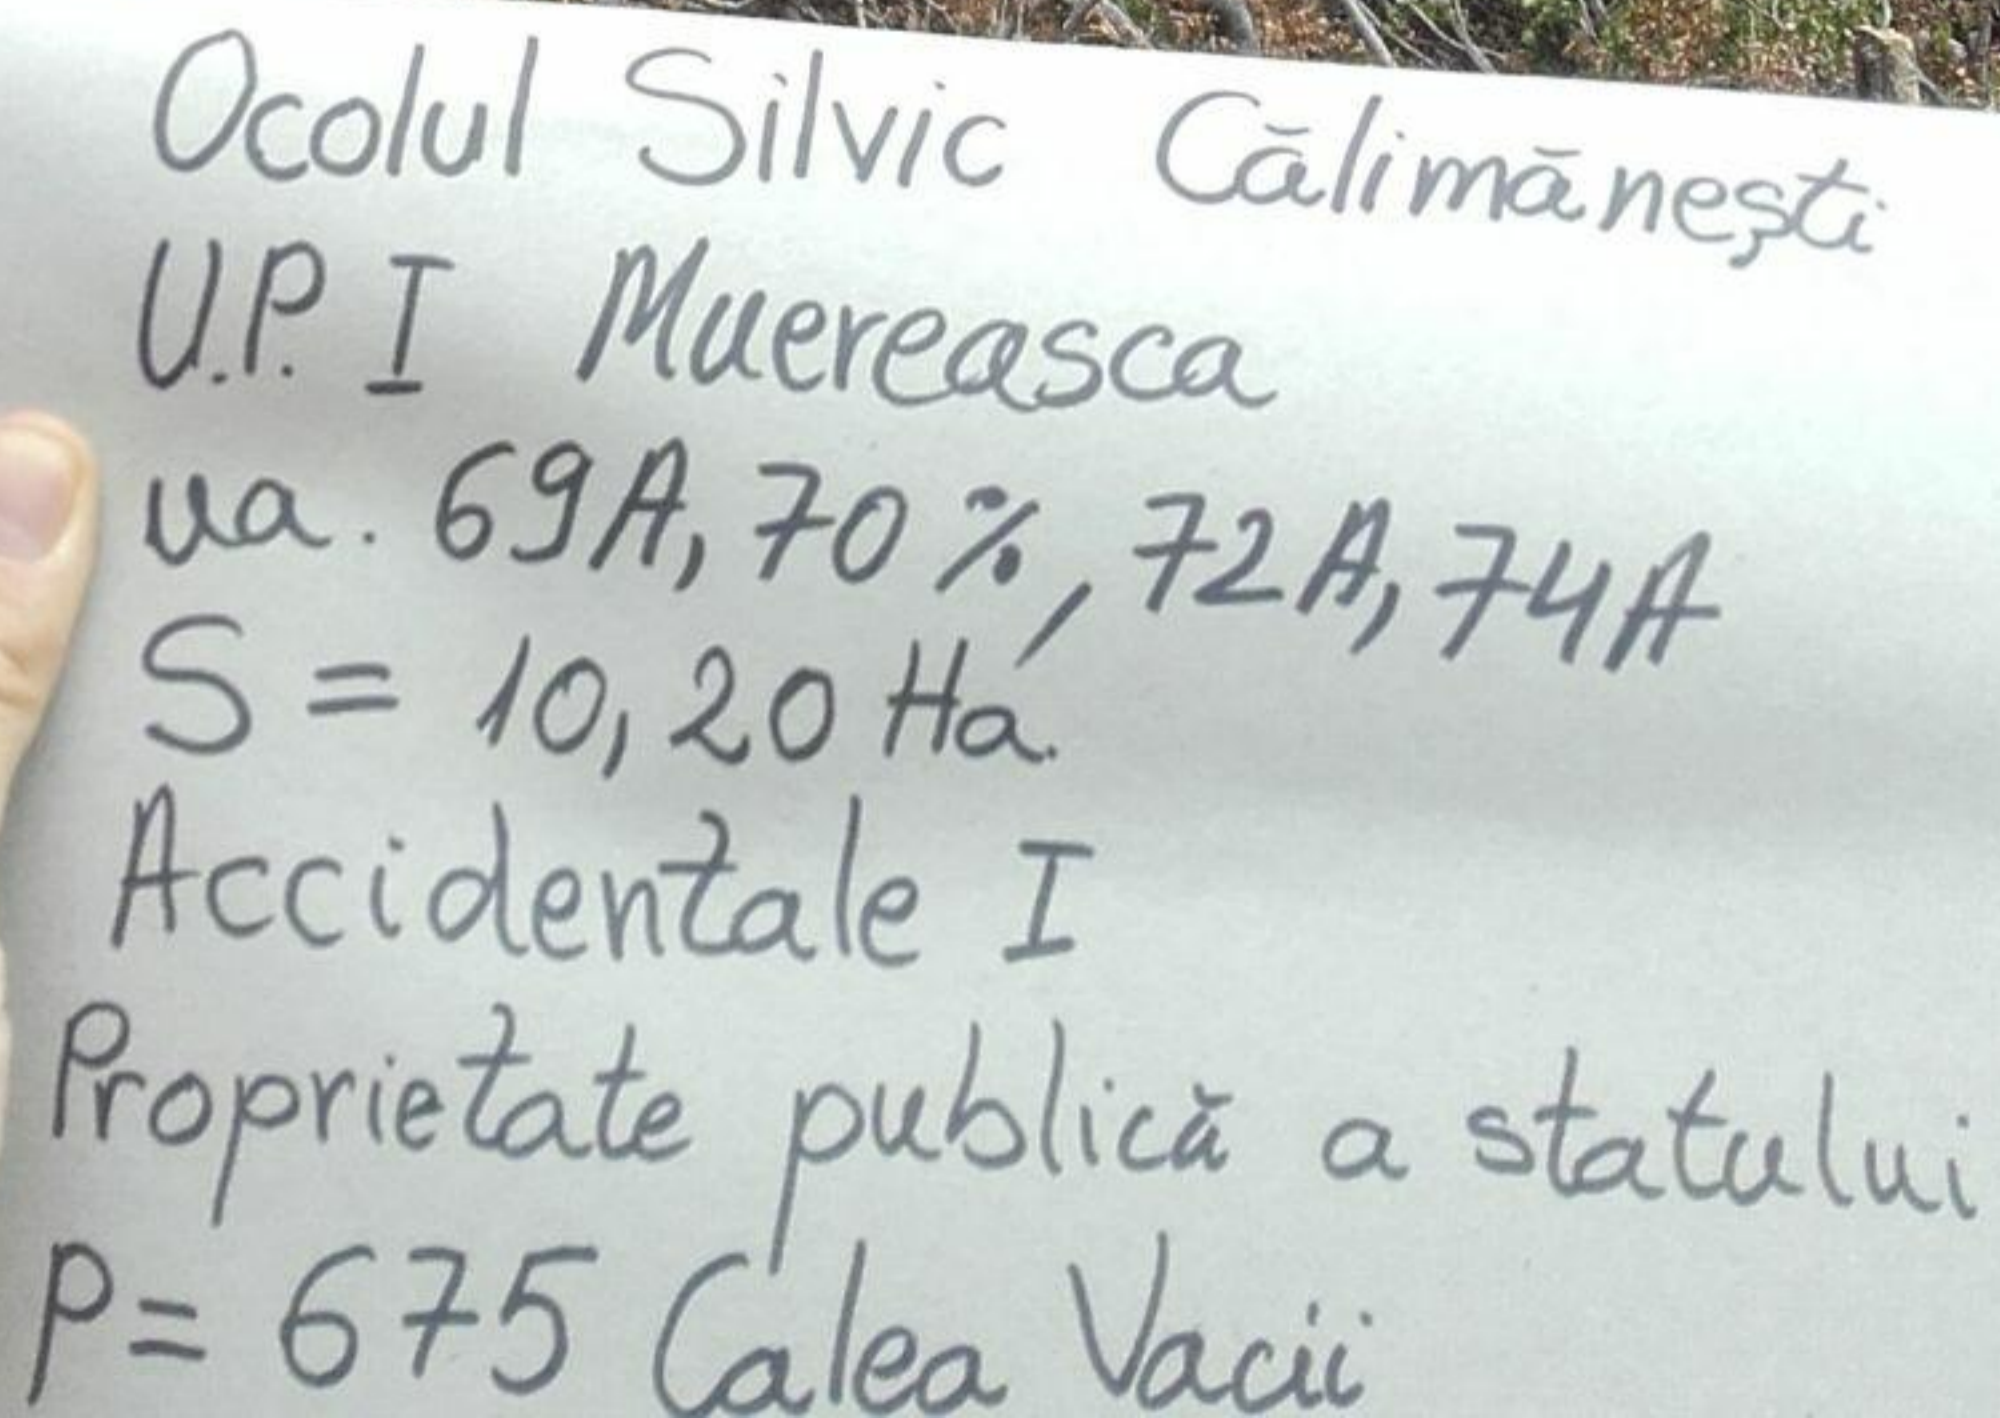 Ocolul Silvic Călimănești
U.P. I Muereasca
ua. 69A, 70 %, 72A, 74A
S = 10,20 Ha.
Accidentale I
Proprietate publică a statului
P= 675 Calea Vacii